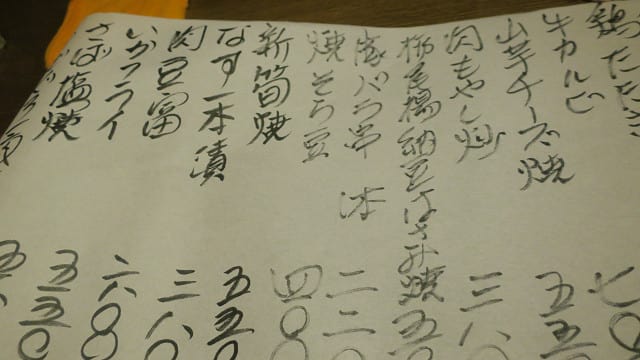 鶏たたき 七〇
牛カルビ 五五
山芋チーズ焼 五五〇
肉もやし炒 三八
栃尾揚納豆はさみ焼 五
豚バラ串 二本 二二〇
焼そら豆 四〇
新筍焼
なす一本漬 五五〇
肉豆富 三八〇
いかフライ 六〇〇
さば塩焼 五五〇